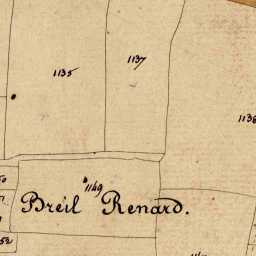 1137
1135
1149
Breil Renard.